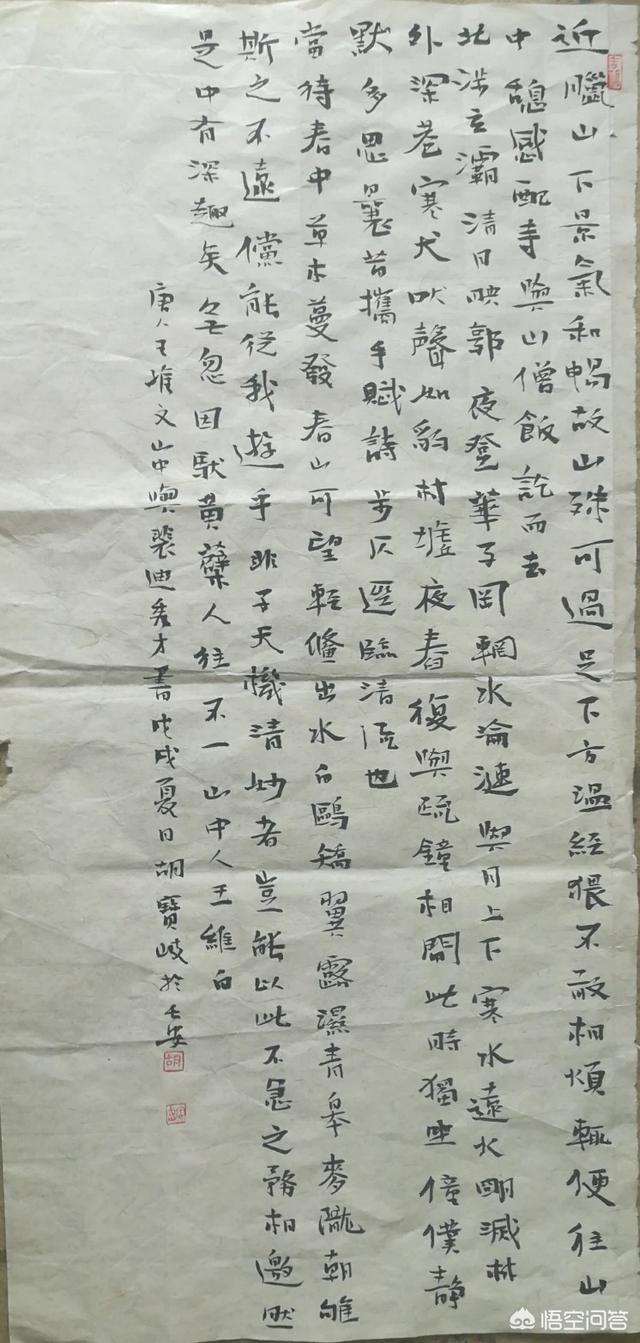 近臘山下景氣和暢故山殊可過足下方温經猥不敢相煩輒便往山
中憩感配寺與山僧飯訖而去
北涉玄灞清月映郭夜登華子岡輞水淪漣與月上下寒水遠火明滅林
外深巷寒犬吠聲如豹村墟夜舂復與疏鐘相間此時獨坐僮僕靜
默多思曩昔攜手賦詩步仄逕臨清流也
當待春中草木蔓發春山可望輕鯈出水白鷗矯翼露濕青皋麥隴朝雊
斯之不遠儻能從我遊乎非子天機清妙者豈能以此不急之務相邀然
是中有深趣矣無忽因馱黃蘗人往不一山中人王維白
唐人王維文山中與裴迪秀才書戊戌夏日胡寶岐於長安
胡
悟空问答